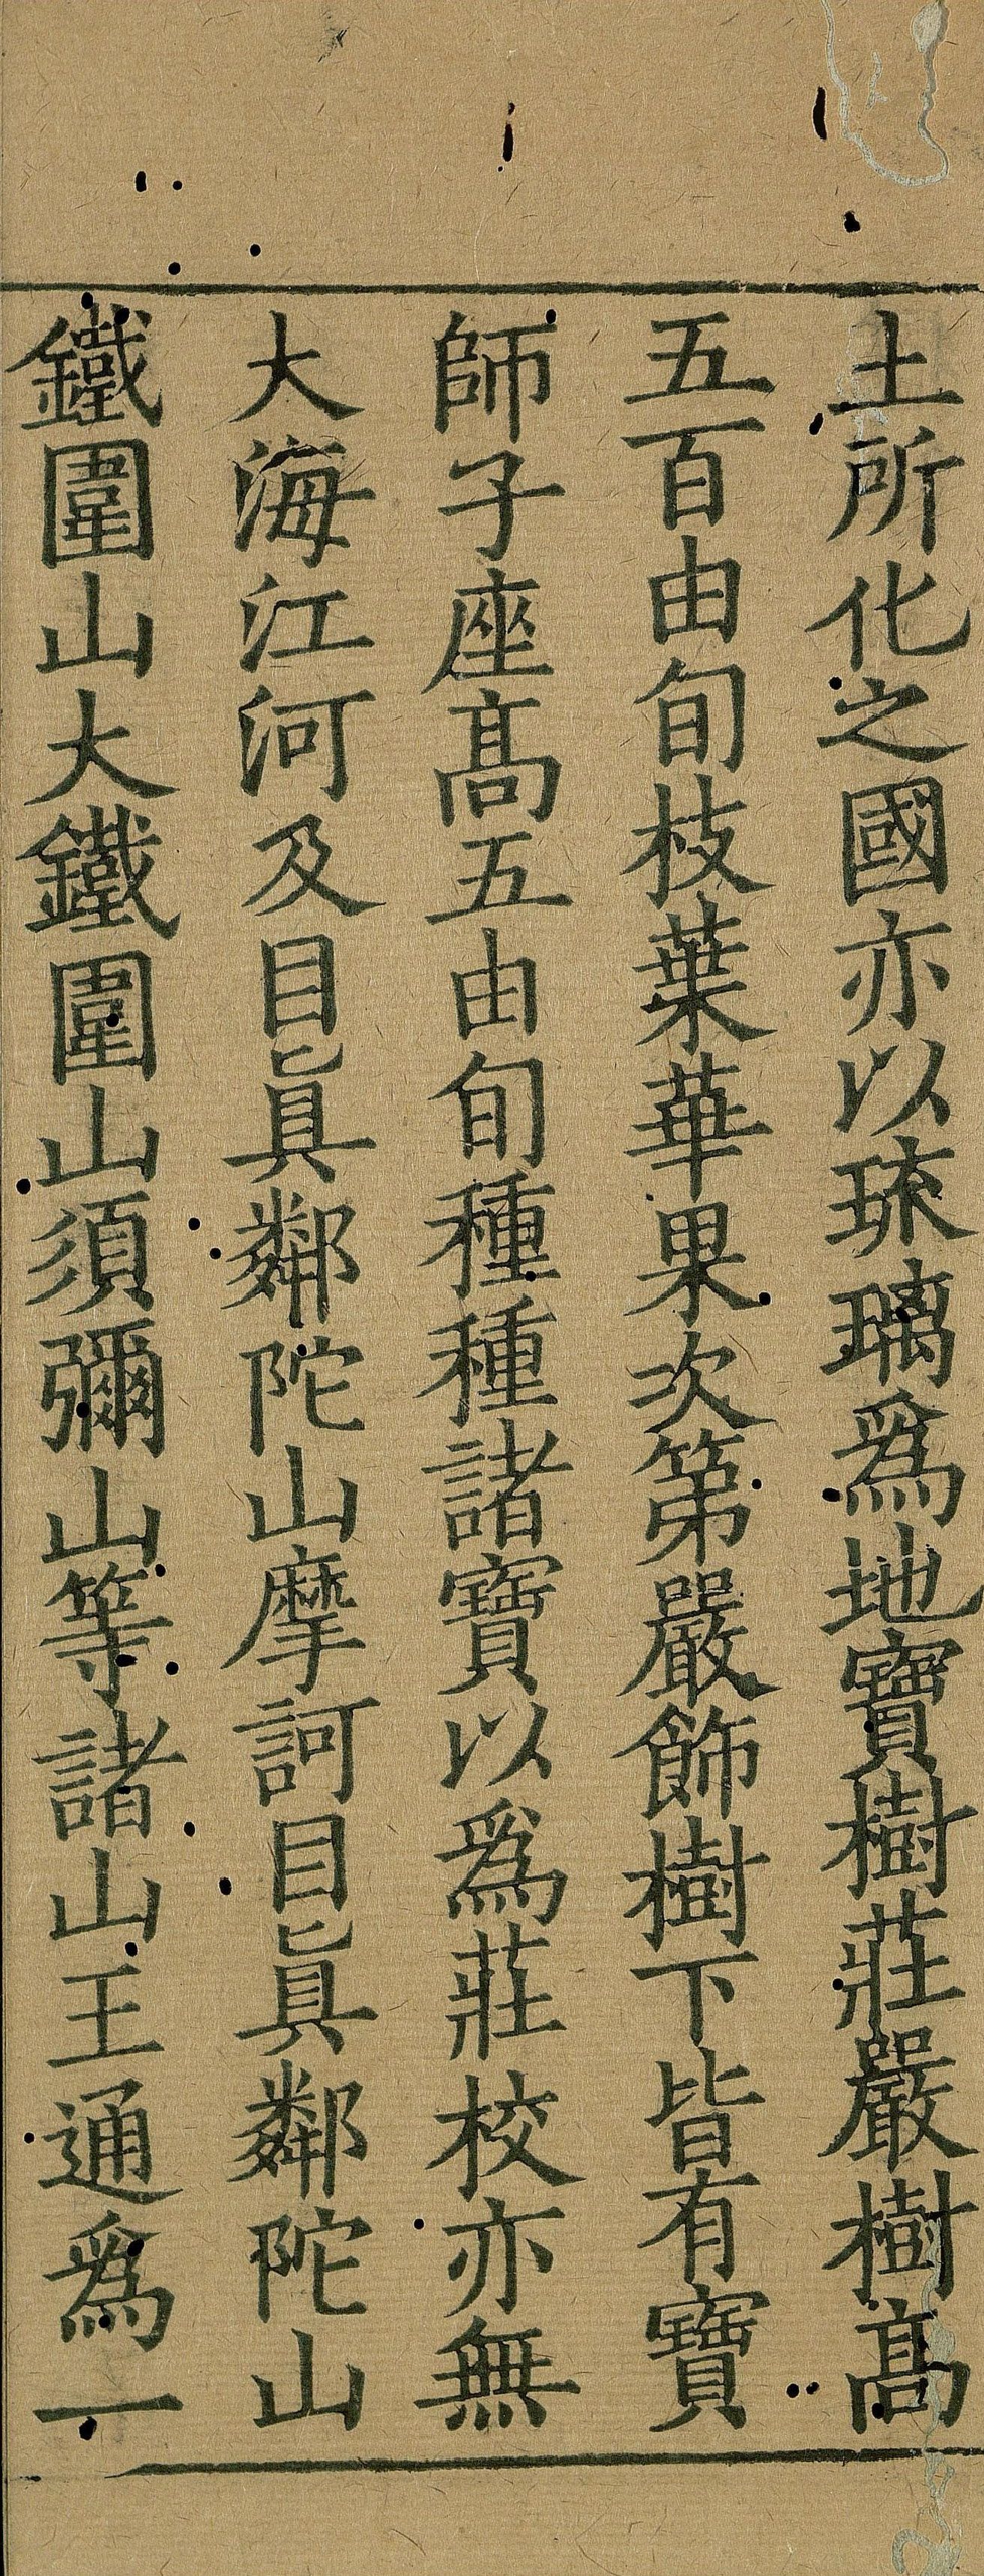 土所化之國亦以琉璃爲地寶樹莊嚴樹髙
五百由旬枝葉華果次第嚴飾樹下皆有寶
師子座髙五由旬種種諸寶以爲莊校亦無
大海江河及目眞鄰陀山摩訶目眞鄰陀山
鐵圍山大鐵圍山須彌山等諸山王通爲一